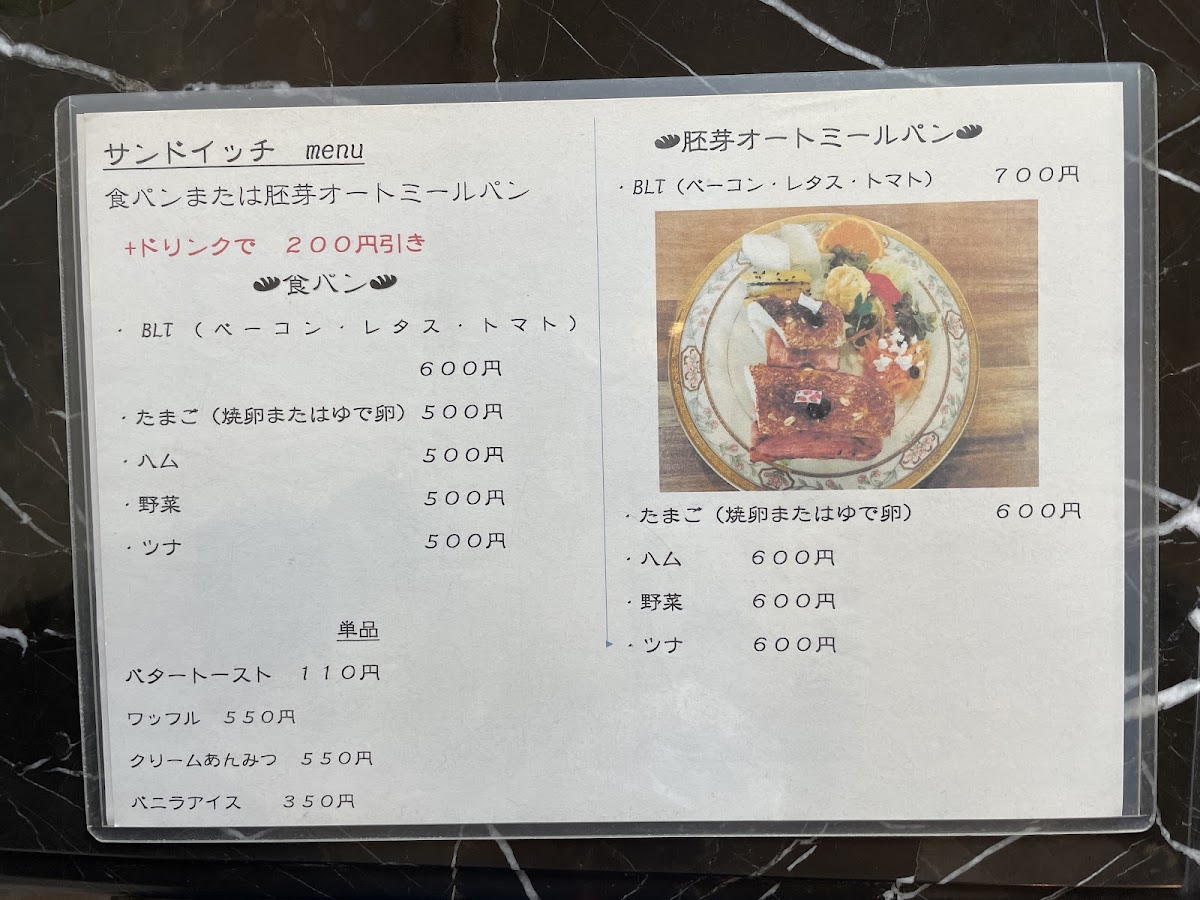 サンドイッチ menu
食パンまたは胚芽オートミールパン
+ドリンクで 200円引き
食パン
・BLT(ベーコン・レタス・トマト)
600円
・たまご(焼卵またはゆで卵) 500円
・ハム 500円
・野菜 500円
・ツナ 500円
単品
バタートースト 110円
ワッフル 550円
クリームあんみつ 550円
バニラアイス 350円
胚芽オートミールパン
・BLT(ベーコン・レタス・トマト) 700円
・たまご(焼卵またはゆで卵) 600円
・ハム 600円
・野菜 600円
・ツナ 600円